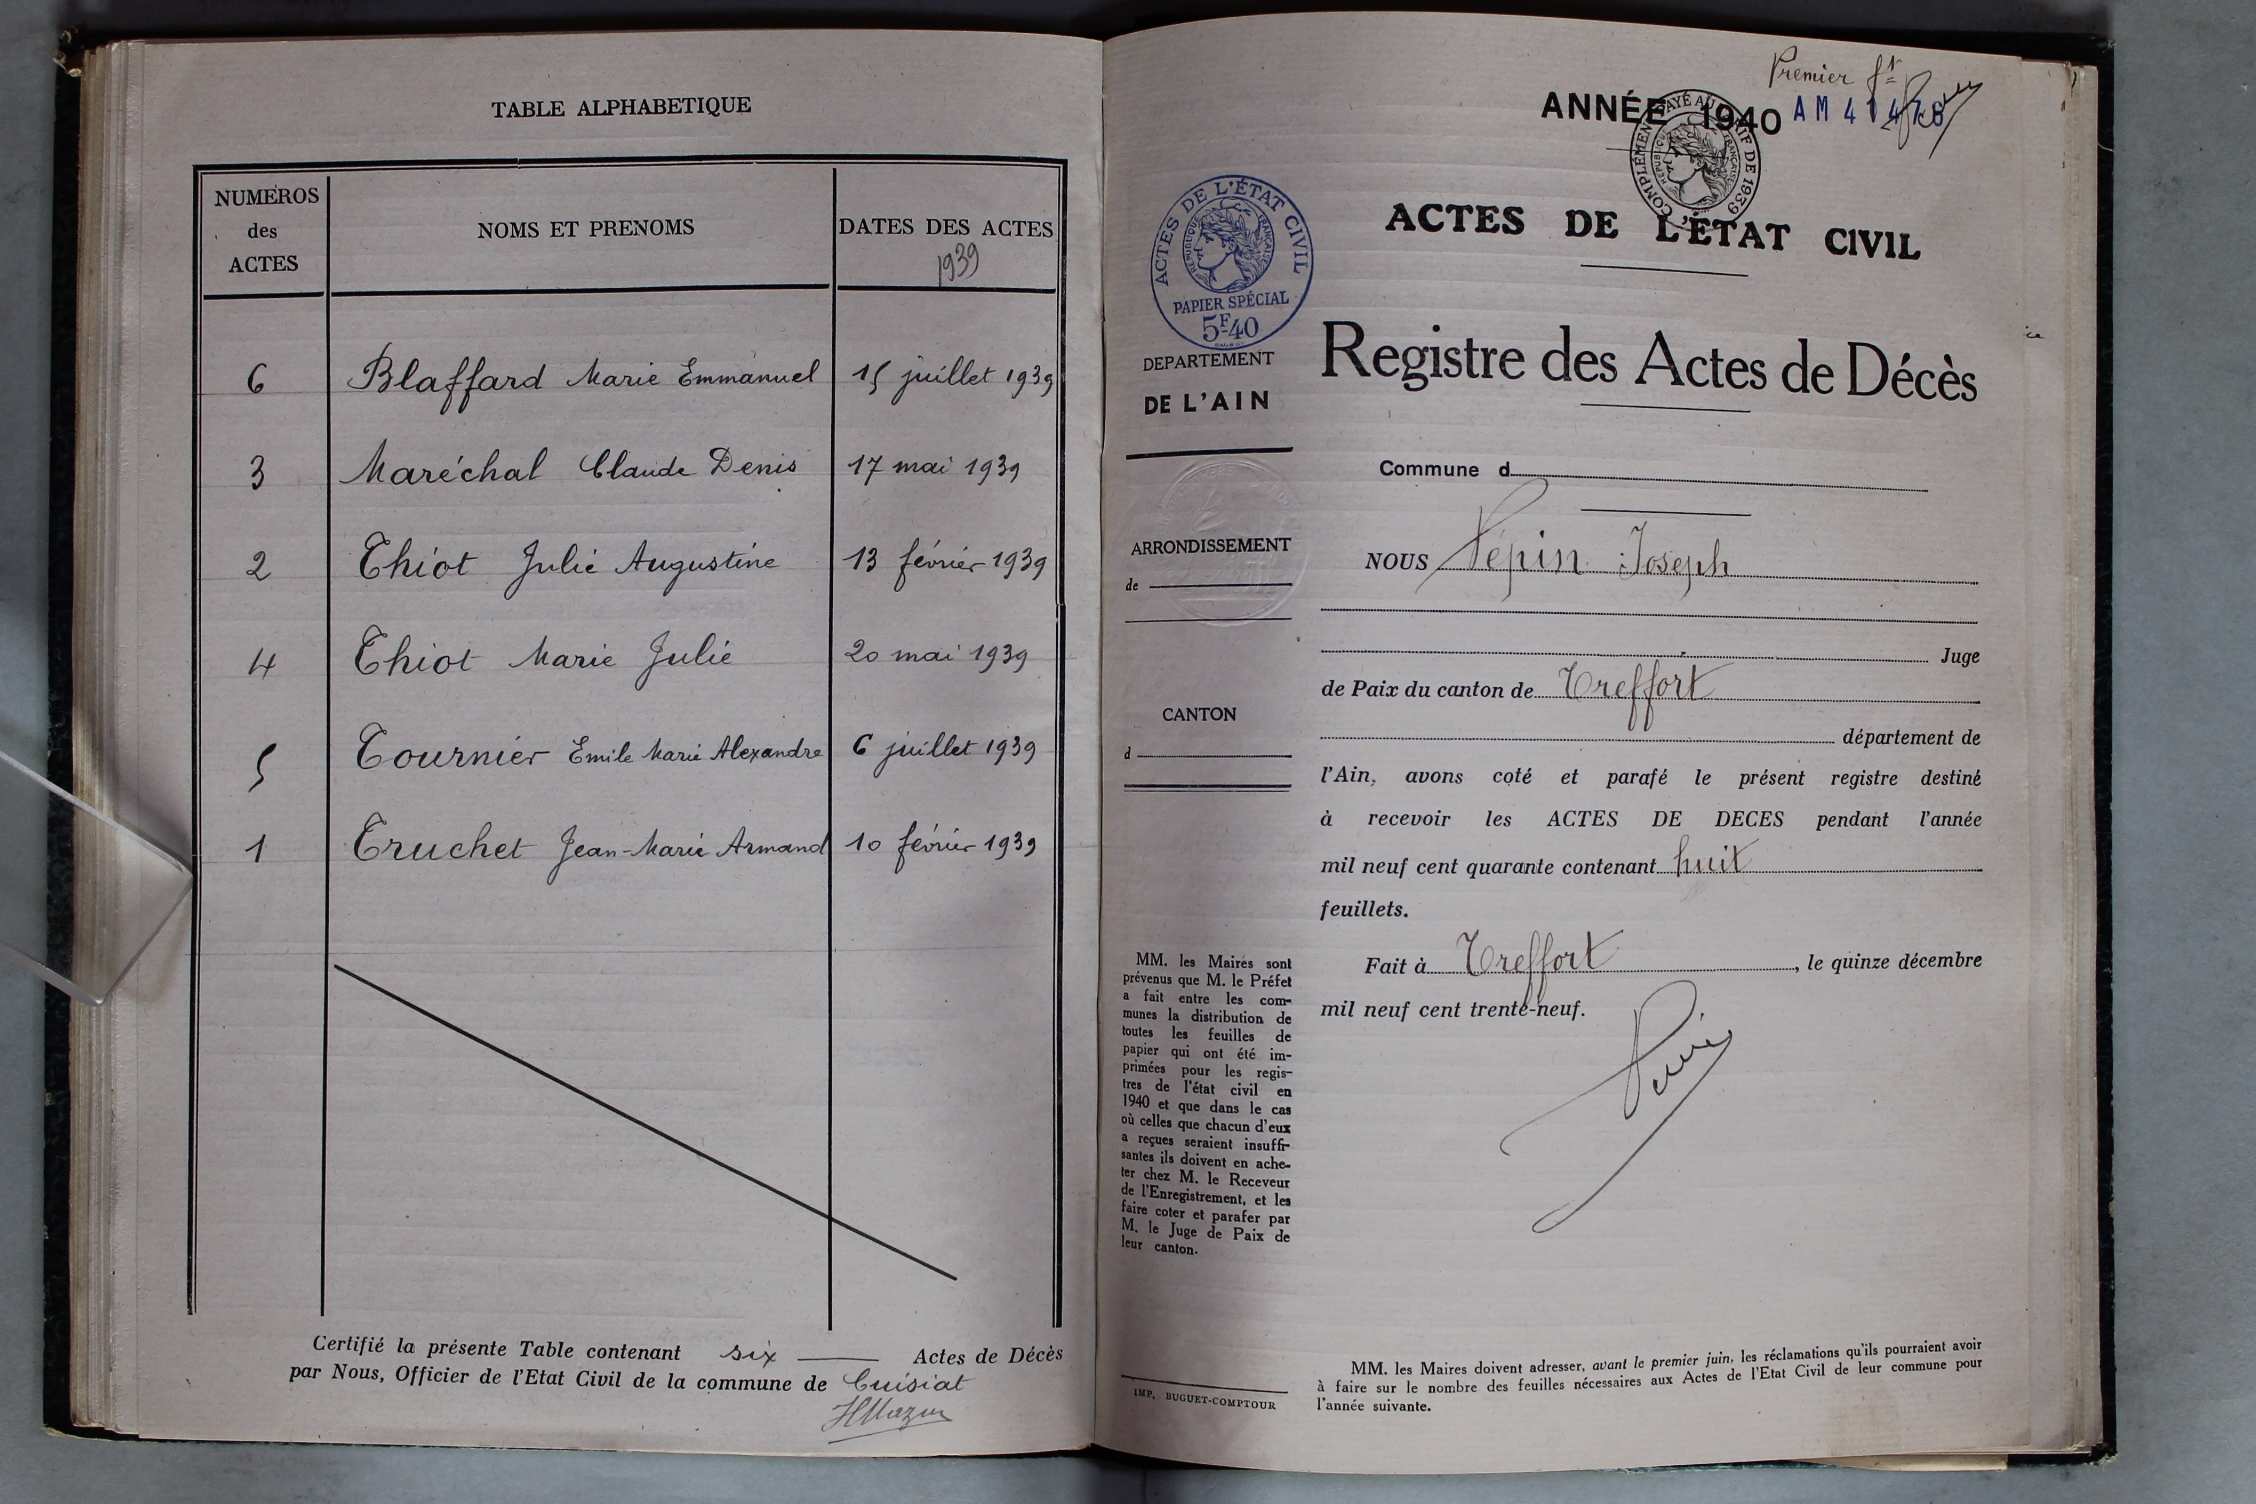 TABLE ALPHABETIQUE
NUMEROS
des
ACTES
NOMS ET PRENOMS
DATES DES ACTES
1939
6 Blaffard Marie Emmanuel 15 juillet 1939
3 Maréchal Claude Denis 17 mai 1939
2 Thiot Julie Augustine 13 février 1939
4 Thiot Marie Julie 20 mai 1939
5 Tournier Emile Marie Alexandre 6 juillet 1939
1 Truchet Jean-Marie Armand 10 février 1939
Certifié la présente Table contenant six Actes de Décès
par Nous, Officier de l'Etat Civil de la commune de Cuisiat
Premier ft
ANNÉE 1940
AM 4
COMPLÉMENT PAYÉ AU TARIF DE 1939
RÉPUBLIQUE FRANÇAISE
ACTES DE L'ÉTAT CIVIL
RÉPUBLIQUE FRANÇAISE
PAPIER SPÉCIAL
5F40
ACTES DE L'ÉTAT CIVIL
DEPARTEMENT
DE L'AIN
ARRONDISSEMENT
de
CANTON
d
MM. les Maires sont
prévenus que M. le Préfet
a fait entre les com-
munes la distribution de
toutes les feuilles de
papier qui ont été im-
primées pour les regis-
tres de l'état civil en
1940 et que dans le cas
où celles que chacun d'eux
a reçues seraient insuffi-
santes ils doivent en ache-
ter chez M. le Receveur
de l'Enregistrement, et les
faire coter et parafer par
M. le Juge de Paix de
leur canton.
IMP. BUGUET-COMPTOUR
Registre des Actes de Décès
Commune d
NOUS Pépin Joseph
Juge
de Paix du canton de Treffort
département de
l'Ain, avons coté et parafé le présent registre destiné
à recevoir les ACTES DE DECES pendant l'année
mil neuf cent quarante contenant huit
feuillets.
Fait à Treffort, le quinze décembre
mil neuf cent trente-neuf.
MM. les Maires doivent adresser, avant le premier juin, les réclamations qu'ils pourraient avoir
à faire sur le nombre des feuilles nécessaires aux Actes de l'Etat Civil de leur commune pour
l'année suivante.